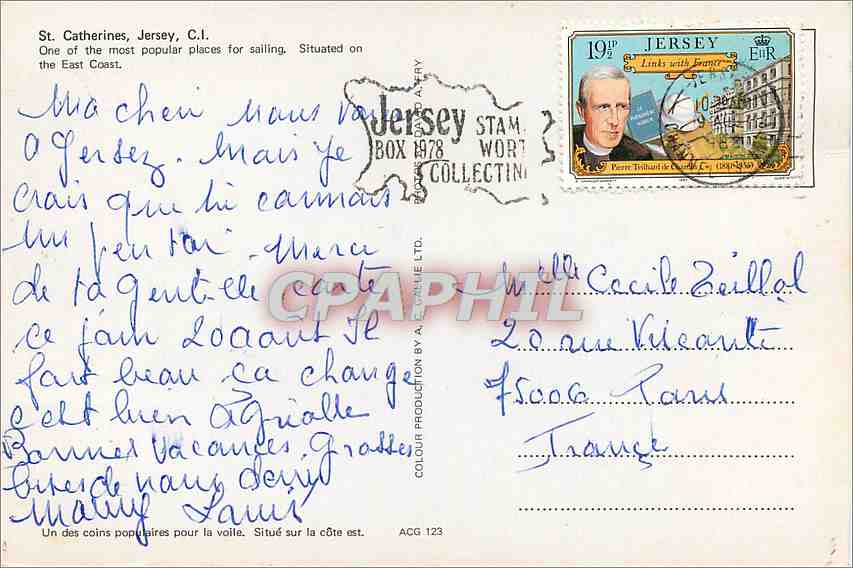 St. Catherines, Jersey, C.I.
One of the most popular places for sailing. Situated on
the East Coast.
Ma cheri nous voici
a Gersez. Mais je
crois que tu connais
un peu toi. Merci
de ta gentille carte
ce jour 20 août Il
fait beau ça change
c est bien agréable
Bonnes Vacances. Grosses
bises de nous deux
Mamy Louis
Un des coins populaires pour la voile. Situé sur la côte est.
ACG 123
COLOUR PRODUCTION BY A. C. GALLIE LTD.
PHOTO BY DAVID AVERY
Jersey STAM
BOX 1978 WORT
COLLECTIN
19½P JERSEY EIIR
Links with France
Pierre Teilhard de Chardin (1881-1955)
Melle Cecile Teillol
20 rue Visconti
75006 Paris
France
CPAPHIL